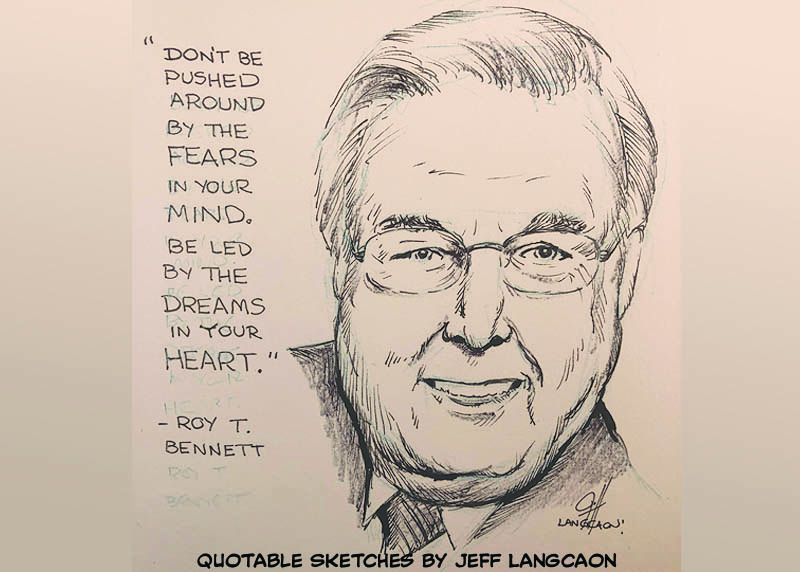 "DON'T BE
PUSHED
AROUND
BY THE
FEARS
IN YOUR
MIND.
BE LED
BY THE
DREAMS
IN YOUR
HEART."
- ROY T.
BENNETT
LANGCAON!
QUOTABLE SKETCHES BY JEFF LANGCAON